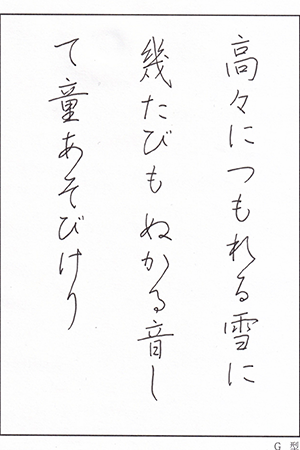 高々につもれる雪に
幾たびもぬかる音し
て童あそびけり
G 型